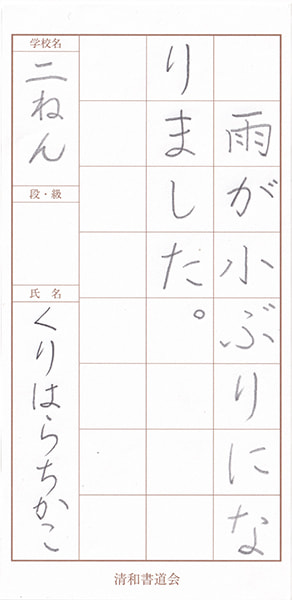 雨が小ぶりにな
りました。
学校名
二ねん
段・級
氏名
くりはらちかこ
清和書道会